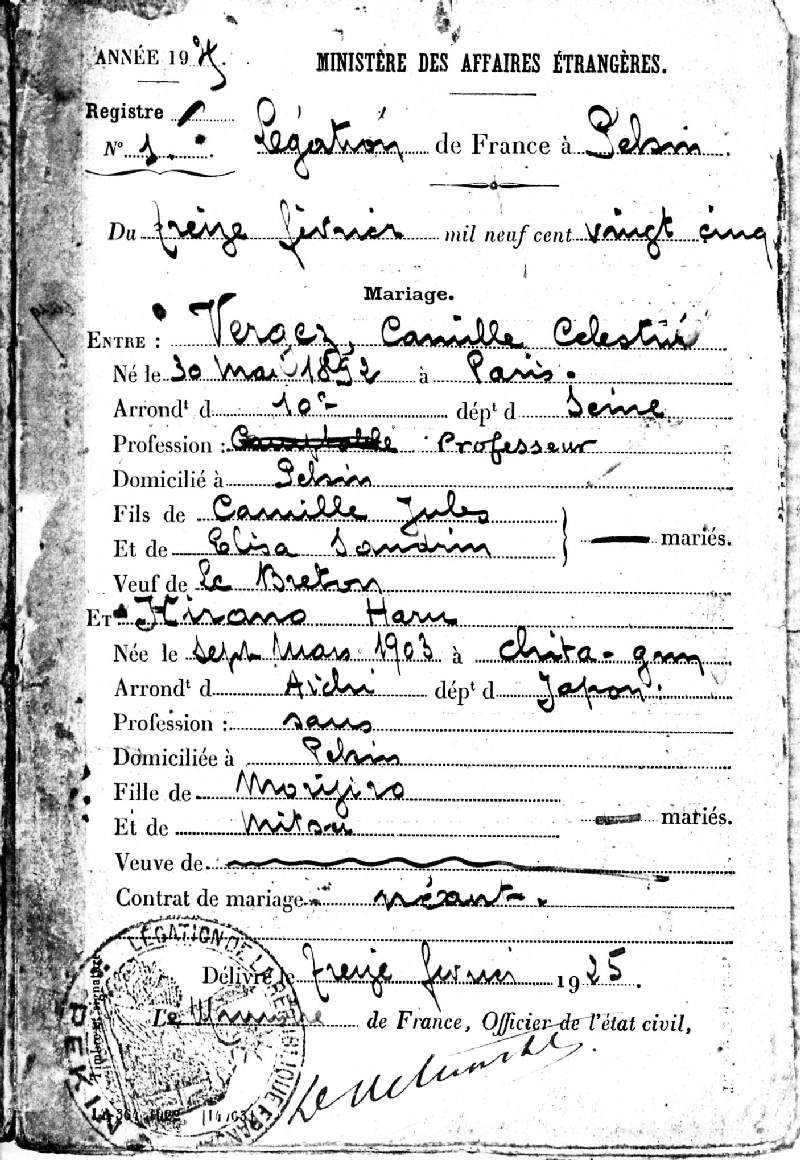 ANNÉE 1925.
MINISTÈRE DES AFFAIRES ÉTRANGÈRES.
Registre
N° 1.
Légation de France à Pekin.
Du treize février mil neuf cent vingt cinq
Mariage.
ENTRE : Vergez, Camille Celestin
Né le 30 Mai 1892 à Paris.
Arrondt d 10e dépt d Seine
Profession : Comptable Professeur
Domicilié à Pekin
Fils de Camille Jules
Et de Elisa Sandrin mariés.
Veuf de Le Breton
ET Hirano Haru
Née le sept Mars 1903 à Chita-gun
Arrondt d Aichi dépt d Japon.
Profession : sans
Domiciliée à Pekin
Fille de Morijiro
Et de Mitsu mariés.
Veuve de
Contrat de mariage néant.
Délivré le treize février 1925.
Le Ministre de France, Officier de l'état civil,
LÉGATION DE LA RÉPUBLIQUE FRAN
PEKIN